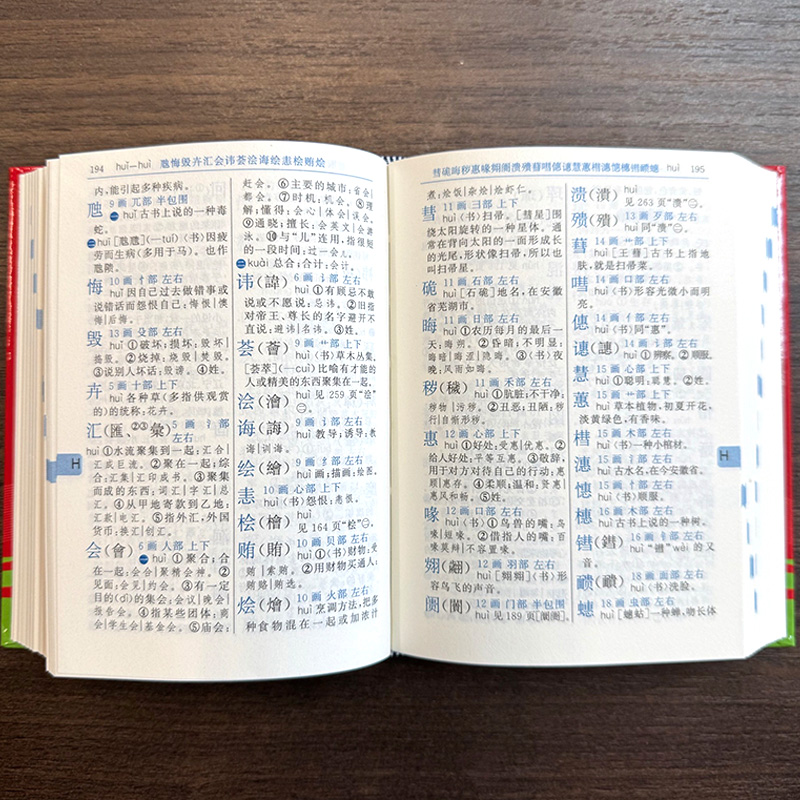 194 huǐ—huì 虺悔毁卉汇会讳荟浍诲绘恚桧贿烩
内,能引起多种疾病。
虺 9画 兀部 半包围
㊀huǐ古书上说的一种毒
蛇。
㊁huī[虺𬯎](—tuí)〈书〉因疲
劳而生病(多用于马)。也作
虺隤。
悔 10画 忄部 左右
huǐ因自己过去做错事或
说错话而怨恨自己:悔恨|懊
悔|后悔。
毁 13画 殳部 左右
huǐ①破坏;损坏:毁坏|
捣毁。②烧掉:烧毁|焚毁。
③说别人坏话:毁谤。④姓。
卉 5画 十部 上下
huì各种草(多指供观赏
的)的统称:花卉。
汇(匯、②③彙) 5画 氵部
左右
huì①水流聚集到一起:汇合|
汇成巨流。②聚在一起;综
合:汇集|汇印成书。③聚集
而成的东西:词汇|字汇|总
汇。④从甲地寄款到乙地:
汇款|电汇。⑤指外汇,外国
货币:换汇|创汇。
会(會) 6画 人部 上下
㊀huì①聚合;合
在一起:会合|聚精会神。②
见面:会见|约会。③有一定
目的(dì)的集会:会议|晚会|
报告会。④指某些团体:商
会|学生会|基金会。⑤庙会:
赶会。⑥主要的城市:省会|
都会。⑦时机:机会。⑧理
解;懂得:会心|体会|误会。
⑨通晓;擅长:会英文|会游
泳。⑩与“儿”连用,指很短
的一段时间:过一会儿。
㊁kuài总合:合计:会计。
讳(諱) 6画 讠部 左右
huì①有顾忌不敢
说或不愿说:忌讳。②旧指
对帝王、尊长的名字避开不
直说:避讳|名讳。③姓。
荟(薈) 9画 艹部 上下
huì〈书〉草木丛集。
[荟萃](—cuì)比喻有才能的
人或精美的东西聚集在一起。
浍(澮) huì
见259页“浍”
㊀。
诲(誨) 9画 讠部 左右
huì教导;诱导:教
诲|训诲。
绘(繪) 9画 纟部 左右
huì画;描画:绘图。
恚 10画 心部 上下
huì〈书〉怨恨:恚恨。
桧(檜) huì
见164页“桧”㊀。
贿(賄) 10画 贝部 左右
huì①〈书〉财物:受
贿|索贿。②用财物买通人:
贿赂|贿选。
烩(燴) 10画 火部 左右
huì烹调方法,把多
种食物混在一起或加浓汁
H
huì 195
煮:烩饭|杂烩|烩虾仁。
彗 11画 彐部 上下
huì〈书〉扫帚。[彗星]围
绕太阳旋转的一种星体。通
常在背向太阳的一面形成长
的光尾,形状像扫帚,所以也
叫扫帚星。
硊 11画 石部 左右
huì[石硊]地名,在安徽
省芜湖市。
晦 11画 日部 左右
huì①农历每月的最后一
天:晦朔。②昏暗;不明显:
晦暗|晦涩|隐晦。③〈书〉夜
晚:风雨如晦。
秽(穢) 11画 禾部 左右
huì①肮脏;不干净:
秽物|污秽。②丑恶;丑陋:秽
行|自惭形秽。
惠 12画 心部 上下
huì①好处:受惠|优惠。②
给人好处:平等互惠。③敬辞,
用于对方对待自己的行动:惠
顾|惠存。④柔顺;温和:贤惠|
惠风和畅。⑤姓。
喙 12画 口部 左右
huì①〈书〉鸟兽的嘴:鸟
喙|短喙。②借指人的嘴:百
喙莫辩|不容置喙。
翙(翽) 12画 羽部 左右
huì[翙翙]〈书〉形
容鸟飞的声音。
阓(闠) 12画 门部 半包围
huì 见189页[阛阓]。
溃(潰) huì
见263页“溃”㊀。
殨(殨) 13画 歹部 左右
huì同“溃”㊀。
蔧 14画 艹部 上下
huì[王蔧]古书上指地
肤,就是扫帚菜。
嘒 14画 口部 左右
huì〈书〉形容光微小而明
亮。
僡 14画 亻部 左右
huì〈书〉同“惠”。
譓(譓) 14画 讠部 左右
huì①辨察。②顺服。
慧 15画 心部 上下
huì①聪明:聪慧。②姓。
蕙 15画 艹部 上下
huì草本植物,初夏开花,
淡黄绿色,有香味。
槥 15画 木部 左右
huì〈书〉一种小棺材。
潓 15画 氵部 左右
huì古水名,在今安徽省。
憓 15画 忄部 左右
huì〈书〉顺服。
橞 16画 木部 左右
huì古书上说的一种树。
16画 钅部 左右
huì wèi的又
音。
靧 18画 面部 左右
huì〈书〉洗脸。
蟪 18画 虫部 左右
huì[蟪蛄]一种蝉,吻长体
H